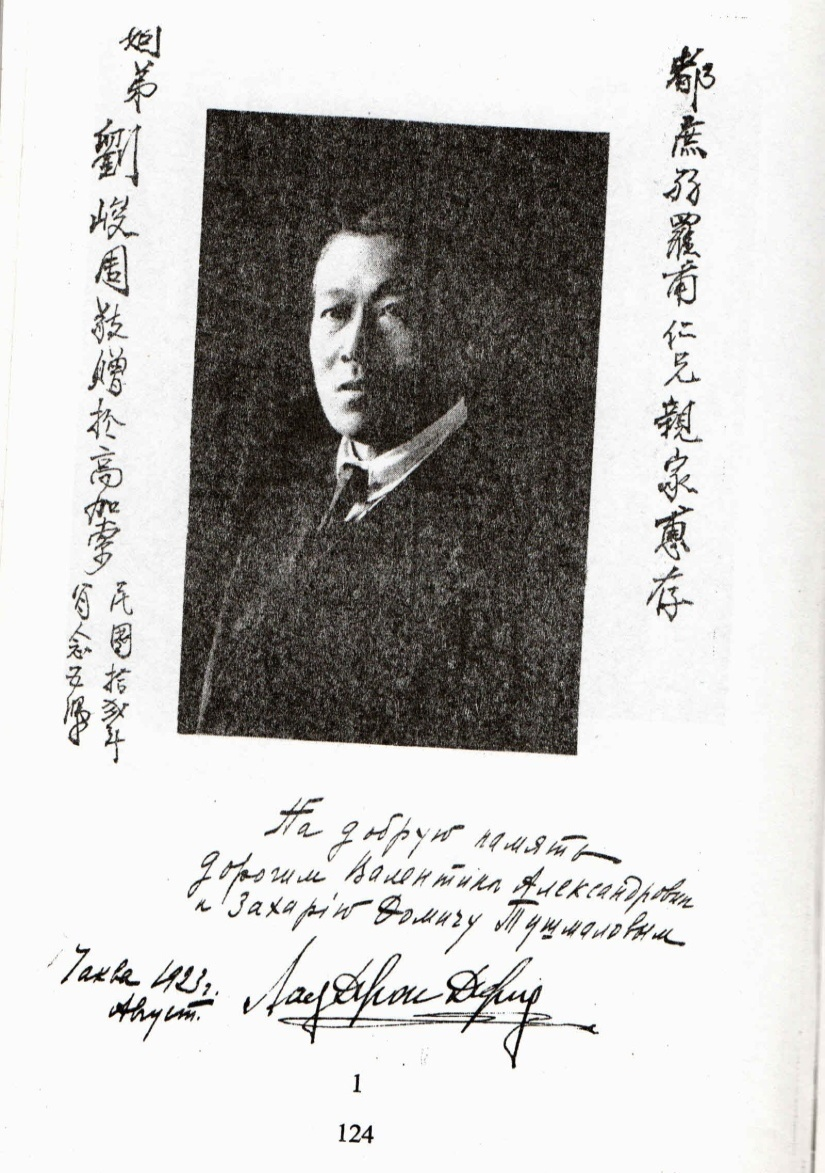 都庶努羅甫仁兄親家惠存
姻弟
劉峻周敬贈於高加索
民國拾弍年
八月念五號
На добрую память
дорогим Валентине Александровне
и Захарію Домичу Тушмаловым
Чаква 1923 г.
Август.
Лау Джон Джау
1
124